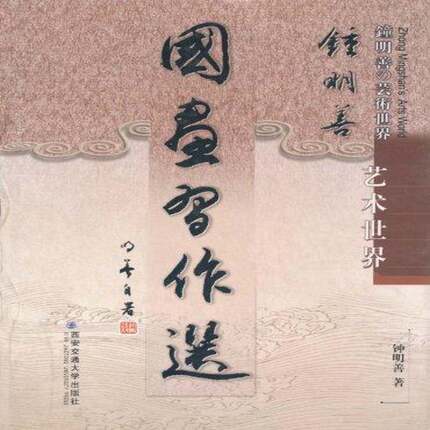 Zhong Mingshan's Arts World
鐘明善の芸術世界
鍾明善
艺术世界
國畫習作選
明善自署
钟明善 著
西安交通大学出版社
XI'AN JIAOTONG UNIVERSITY PRESS